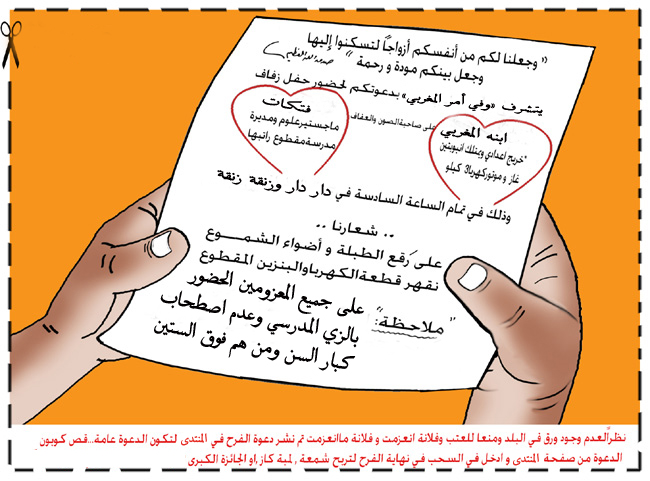 " وجعلنا لكم من أنفسكم أزواجاً لتسكنوا إليها
وجعل بينكم مودة و رحمة " صدق الله العظيم
يتشرف «وفي أمر المغربي» بدعوتكم لحضور حفل زفاف
ابنه المغربي
"خريج اعدادي ويمتلك أنبوبتين
غاز و موتور كهربا3 كيلو
على صاحبة الصون والعفاف
فتكات
ماجستير علوم ومديرة
مدرسة مقطوع راتبها
وذلك في تمام الساعة السادسة في دار دار وزنقة زنقة
.. شعارنا ..
على رَقع الطبلة و أضواء الشمــوع
نقهر قطعة الكهربا والبنزين المقطوع
"ملاحظة:" على جميع المعزومين الحضور
بالزي المدرسي وعدم اصطحاب
كبار السن ومن هم فوق الستين
نظراًلعدم وجود ورق في البلد ومنعا للعتب وفلانة انعزمت و فلانة ماانعزمت تم نشر دعوة الفرح في المنتدى لتكون الدعوة عامة...قص كوبون
الدعوة من صفحة المنتدى و ادخل في السحب في نهاية الفرح لتربح شمعة , لمبة كاز,او الجائزة الكبرى